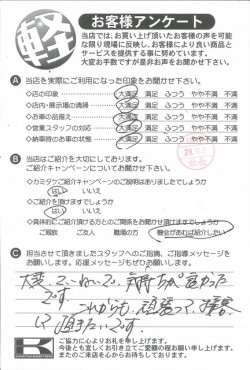 軽
お客様アンケート
当店では、お買い上げ頂いたお客様の声を可能
な限り現場に反映し、お客様により良い商品と
サービスを提供する事に努めています。
大変お手数ですが是非お声をお聞かせ下さい。
A 当店を実際にご利用になった印象をお聞かせ下さい。
◇店の印象 大満足 満足 ふつう やや不満 不満
◇店内・展示場の清掃 大満足 満足 ふつう やや不満 不満
◇お車の品揃え 大満足 満足 ふつう やや不満 不満
◇営業スタッフの対応 大満足 満足 ふつう やや不満 不満
◇納車時のお車の状態 大満足 満足 ふつう やや不満 不満
B 当店ではご紹介を大切にしております。
ご紹介キャンペーンについてお聞かせ下さい。
◇カミタケご紹介キャンペーンのご説明はありましたでしょうか
はい いいえ
◇ご紹介を頂けますでしょうか
はい いいえ
◇具体的にご紹介頂ける方とのご関係をお聞かせ頂けますでしょうか
ご親族 ご友人 職場の方 機会があれば紹介したい
C 担当させて頂きましたスタッフへのご指摘、ご指導メッセージを
お願いします。応援メッセージもぜひお願いします。
大変、ていねいで、気持ちが良かった
です。
これからも、頑張って、接客
して頂きたいです。
K
ご協力に心よりお礼を申し上げます。
今後とも宜しくお引き立てご愛顧の程お願い申し上げます。
またのご来店を心からお待ちしております。